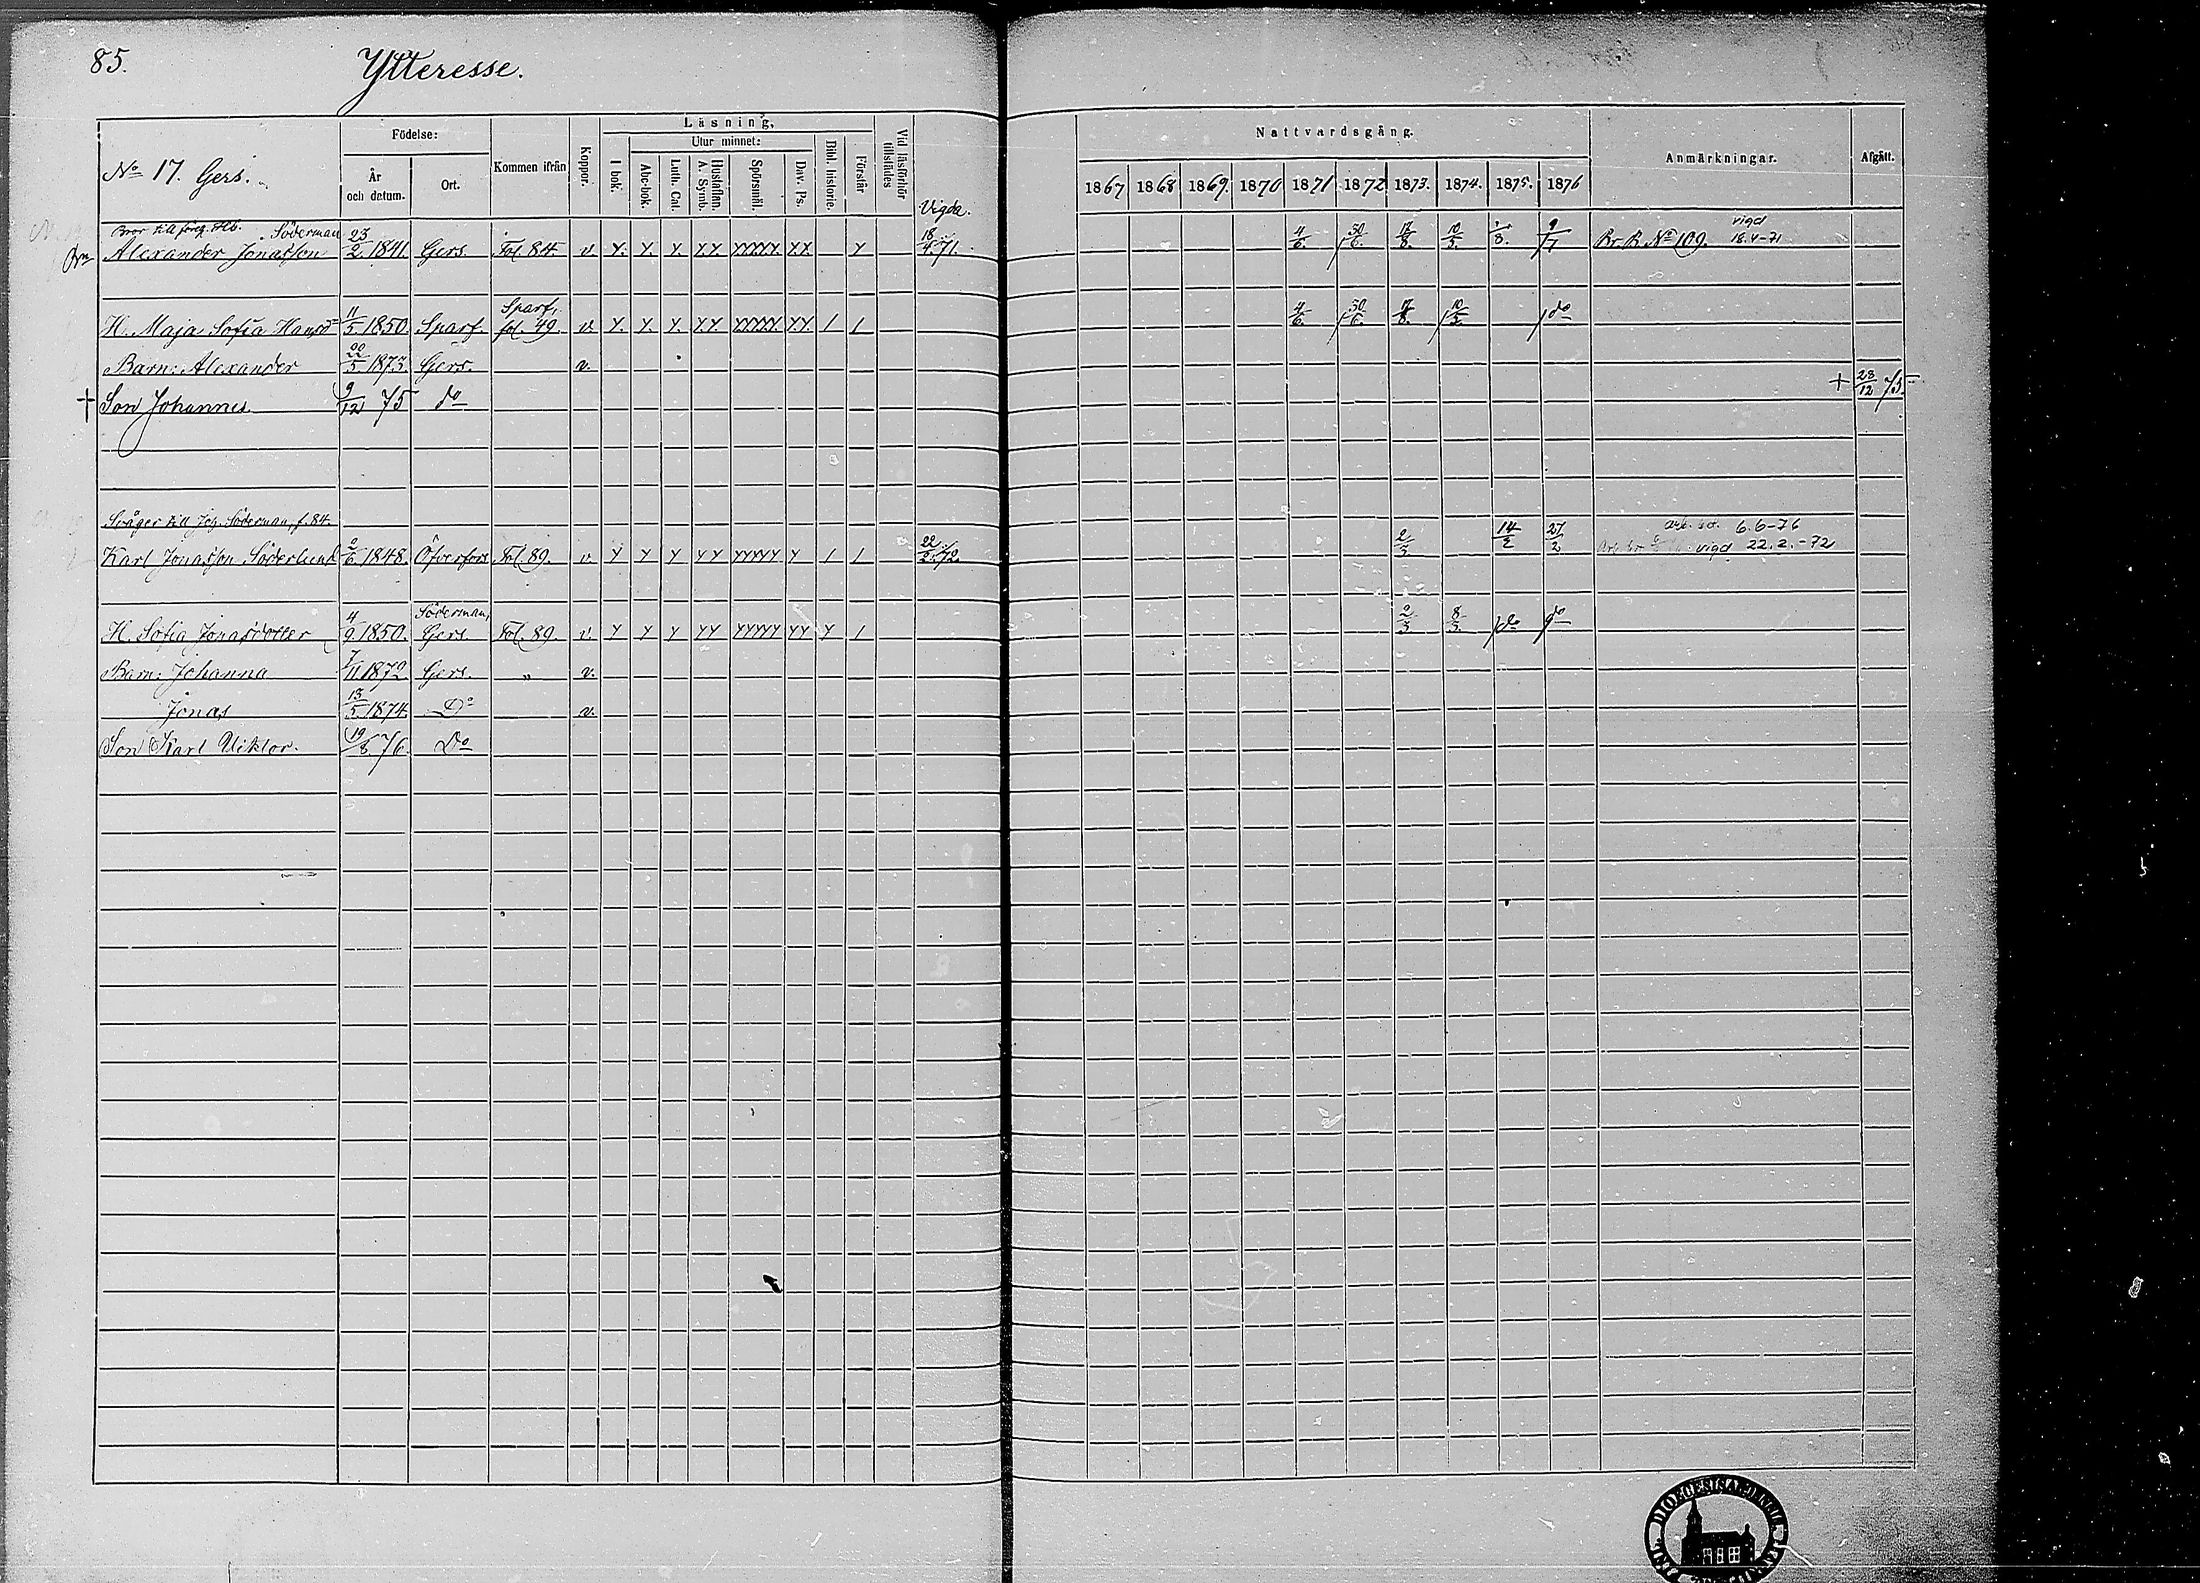 85.
Ytteresse.
No 17. Gers.
Födelse:
År
och datum.
Ort.
Kommen ifrån
Koppor.
Läsning,
I bok.
Utur minnet:
Abc-bok.
Luth. Cat.
Hustaflan.
A. Symb.
Spörsmål.
Dav. Ps.
Bibl. historie.
Förstår
Vid läsförhör
tillstädes
Vigda.
Nattvardsgång.
1867 1868 1869. 1870 1871 1872 1873. 1874. 1875. 1876
Anmärkningar.
Afgått.
Bror till föreg. Hb. Söderman
Alexander Jonasson 23/2. 1841. Gers. Fol. 84. v. Y. Y. Y. YY. YYYYY. YY. Y 18/4. 71. 4/6. 30/6. 17/8. 10/5. 9/7 Br. B. No 109. vigd 18.4-71
H. Maja Sofia Hansd= 11/5 1850. Sparf. Sparf, fol. 49. v. Y. Y. Y. YY. YYYYY YY. / / 4/6. 30/6. 17/8. 10/5. do
Barn: Alexander 22/5 1873. Gers. v.
† Son Johannes 9/12 75 do † 28/12 75.
Svåger till Joh. Söderman, f. 84.
Karl Jonasson Söderlund 2/6. 1848. Öfverfors Fol. 89. v. Y Y Y YY YYYYY Y / / 22/2. 72. 2/3 14/2 27/2 6.6-76
vigd 22.2.-72
H. Sofia Jonasdotter 4/9. 1850. Söderman, Gers. Fol. 89 v. Y Y Y YY YYYYY YY Y / 2/3 8/3. do do
Barn: Johanna 7/11 1872. Gers. „ v.
Jonas 13/5. 1874. Do v.
Son Karl Viktor. 19/8 76. Do